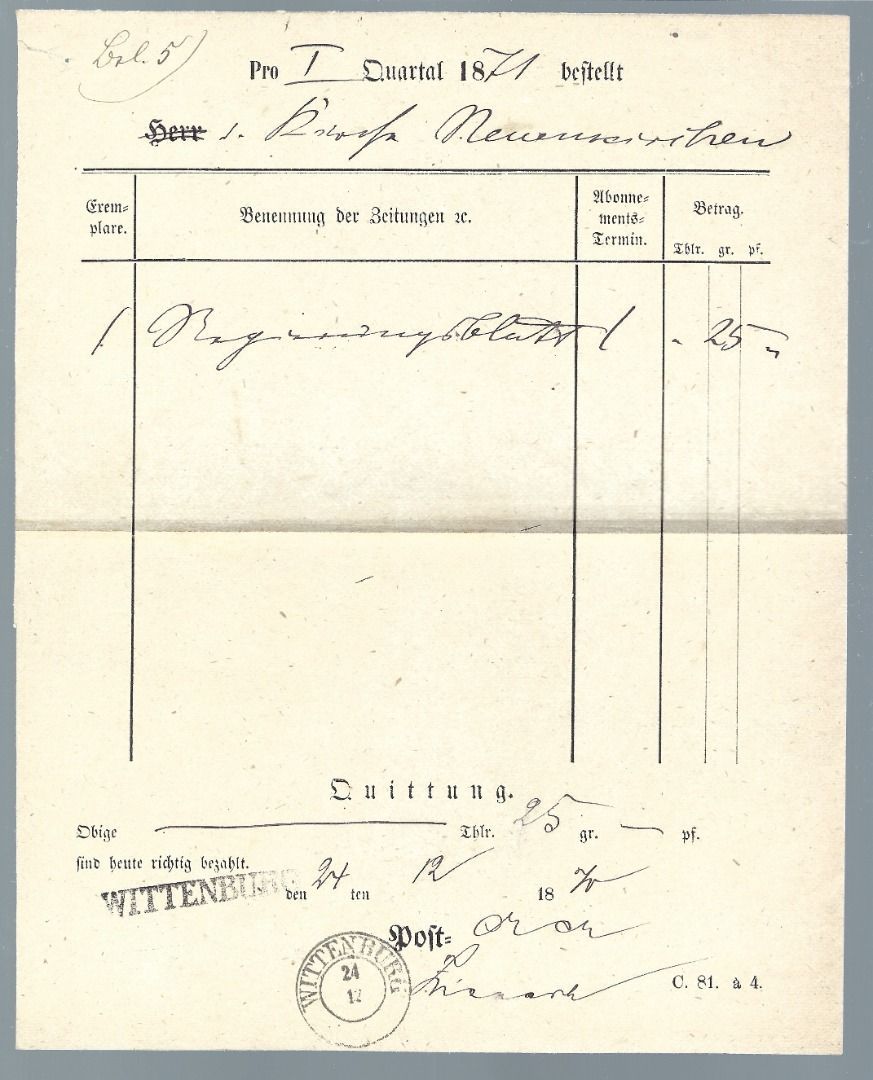 Bel. 5)
Pro I Quartal 1871 bestellt
Herr d. Kirche Neuenkirchen
Exem-
plare.
Benennung der Zeitungen ꝛc.
Abonne-
ments-
Termin.
Betrag.
Thlr. gr. pf.
1 Regierungsblatt 1 - 25 -
Quittung.
Obige — Thlr. 25 gr. — pf.
sind heute richtig bezahlt.
WITTENBURG den 24 ten 12 1870
Post-
WITTENBURG
24
12
C. 81. a 4.